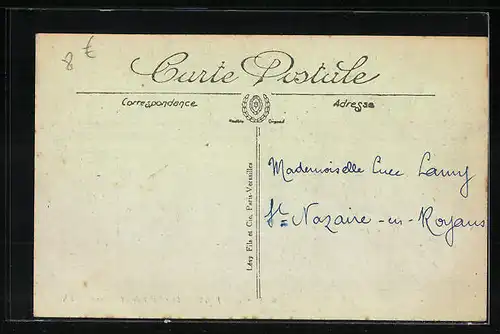 8 €
Carte Postale
Correspondance
Adresse
Lévy Fils et Cie, Paris-Versailles
Mademoiselle Luce Lamy
St= Nazaire-en-Royans